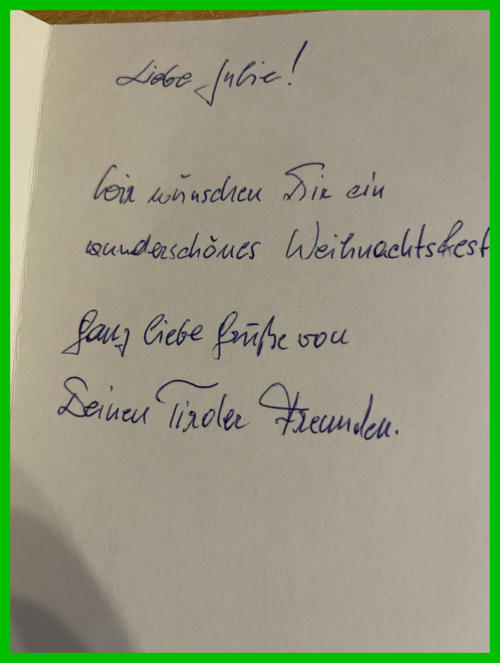 Liebe Julie!
Wir wünschen Dir ein
wunderschönes Weihnachtsfest
Ganz liebe Grüße von
Deinen Tiroler Freunden.